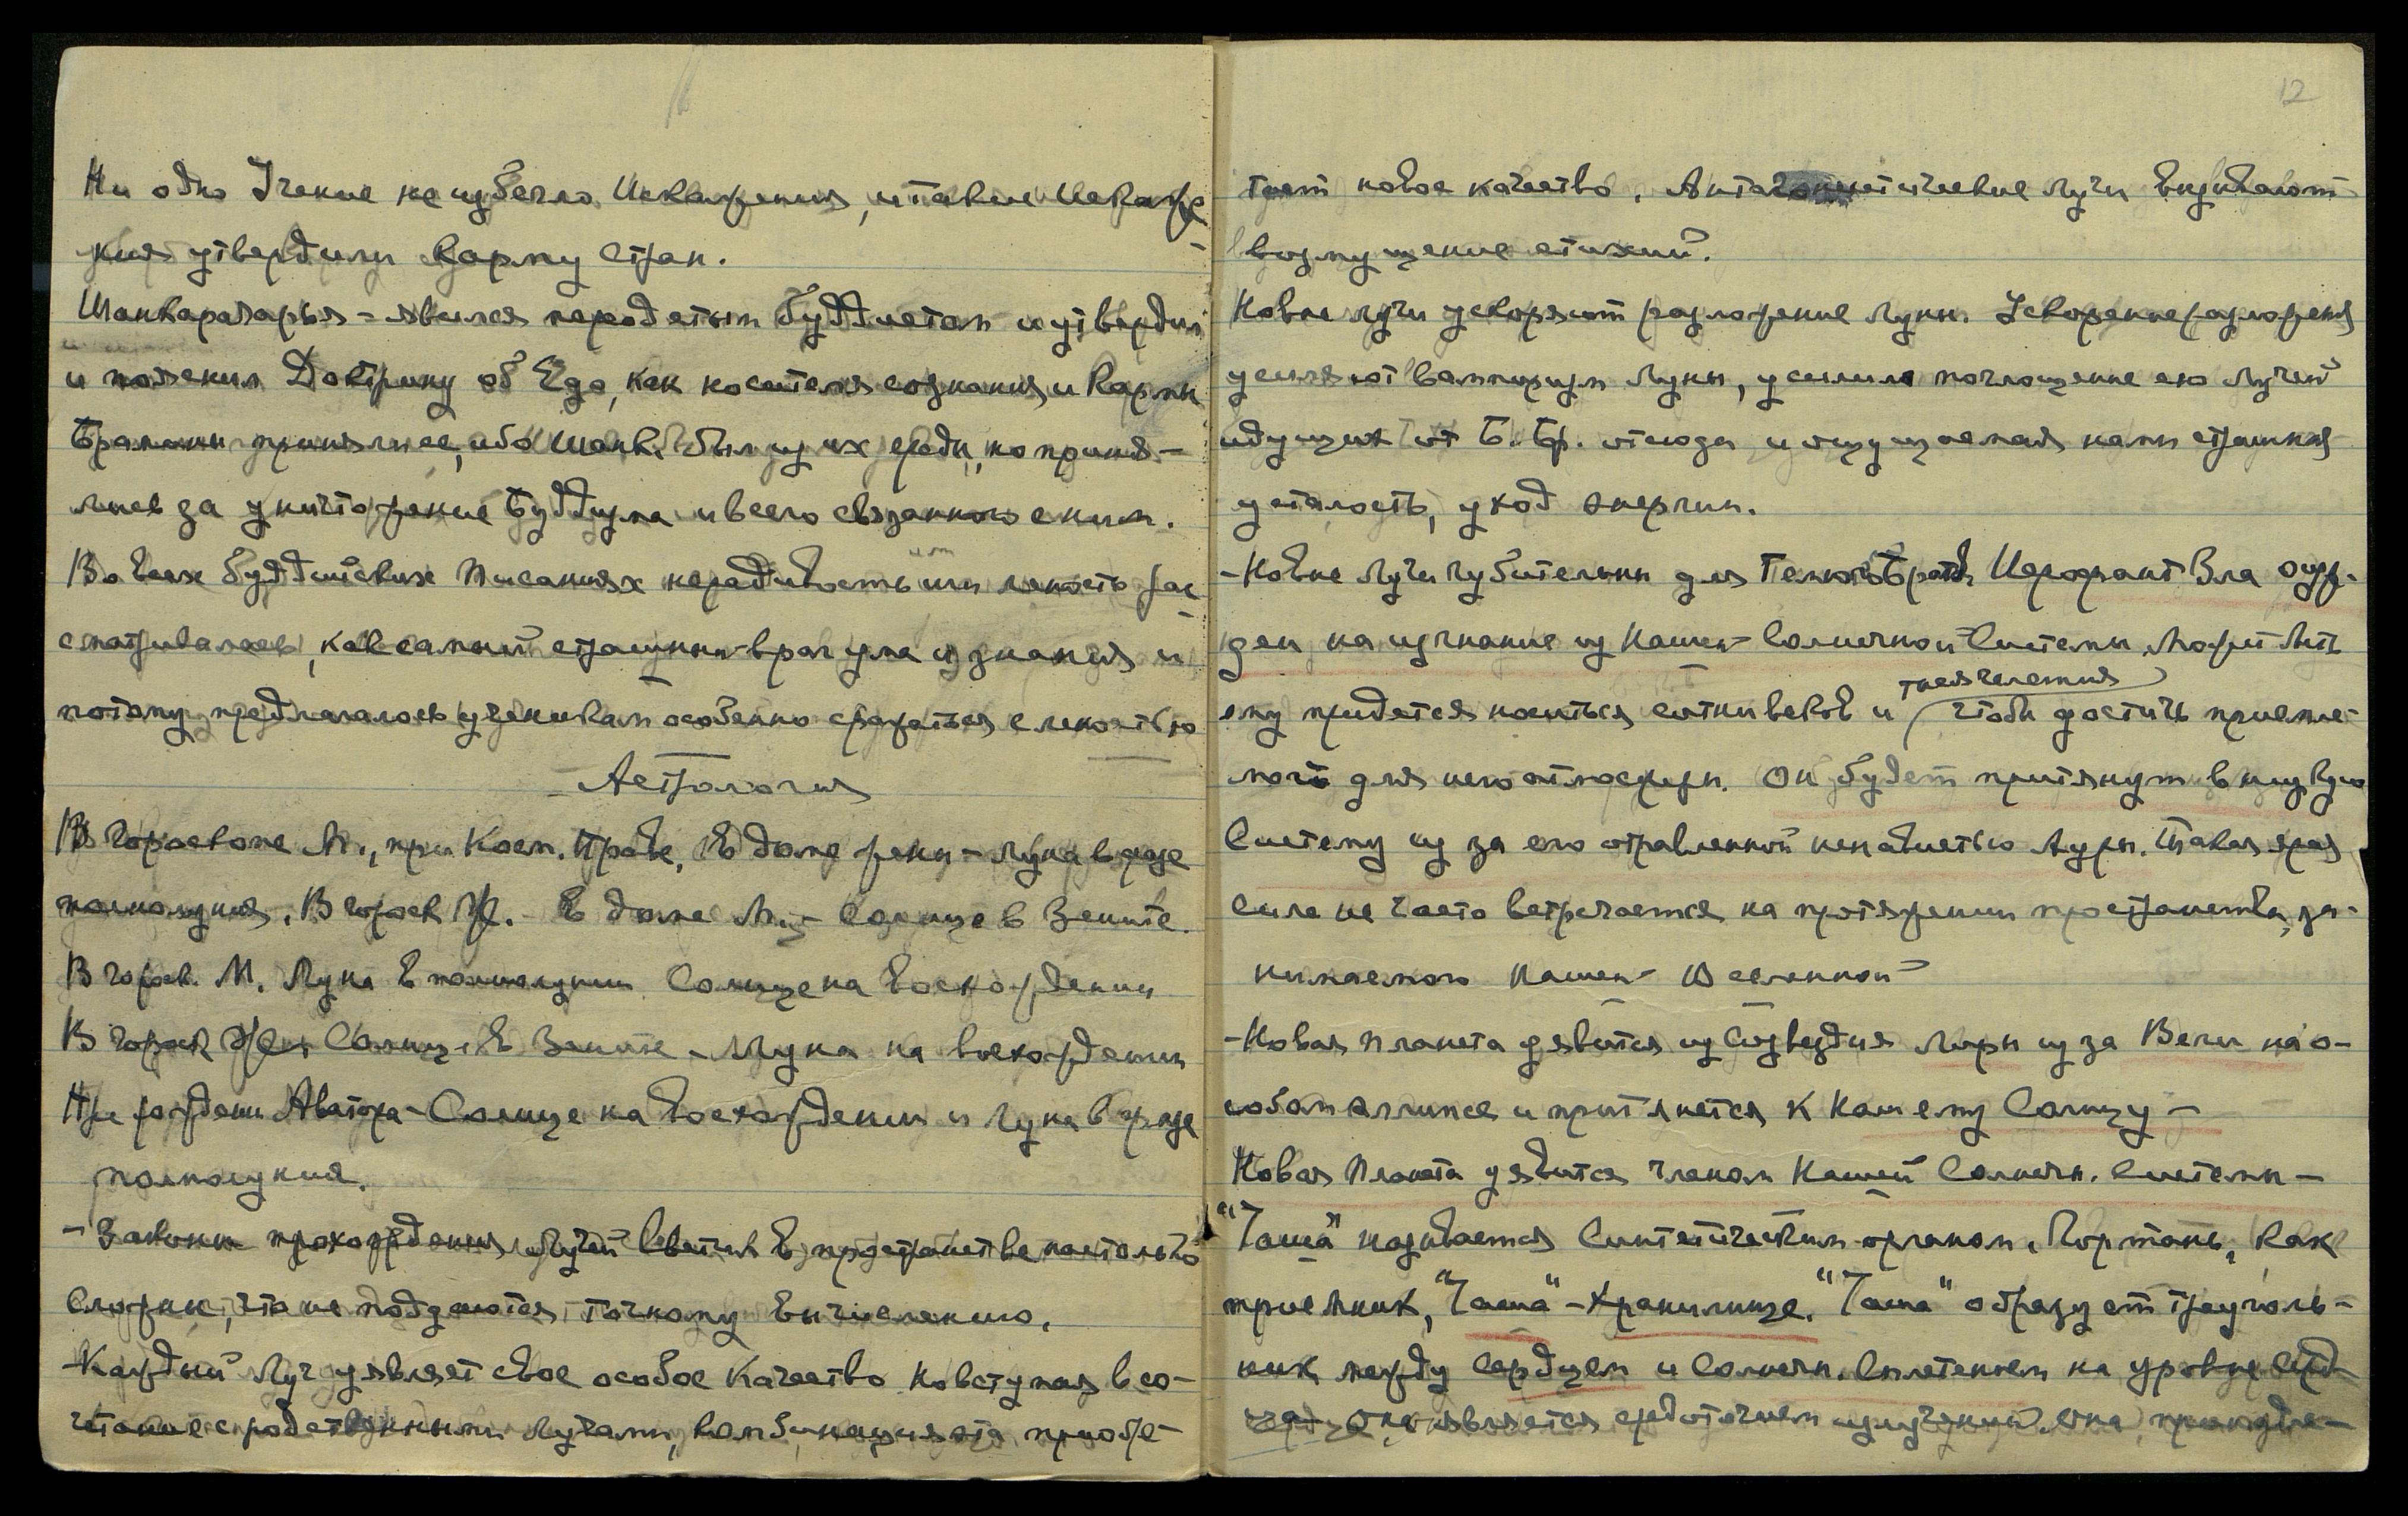 Ни одно Учение не избегло Искажения, и такие Искаже-
ния утвердили Карму стран.
Шанкарачарья - явился переодетым буддистом и утвердил
и пояснил Доктрину об Его, как носителя сознания и Кармы
Брамины приняли ее, ибо Шанк. был из их среды, но приня-
лись за уничтожение Буддизма и всего связанного с ним.
Во всех буддийских Писаниях нерадивость или леность рас-
сматривалась, как самый страшный враг ума и знания и
потому предлагалось ученикам особенно сражаться с леностью
Астрология
В гороскопе М., при Косм. Праве, в доме жены - Луна в фазе
полнолуния. В гороск. Ж. - в доме М. - Солнце в Зените.
В горск. М. Луна в полнолунии Солнце на восхождении
В гороск Ж. Солнце в Зените - Луна на восхождении
При рождении Аватара - Солнце на восхождении и Луна в фазе
полнолуния.
- Законы прохождения Лучей Светил в пространстве настолько
сложны, что не поддаются точному вычислению.
- Каждый Луч являет свое особое качество но вступая в со-
четание с родственными Лучами, комбинация эта приобре-
тает новое качество. Антагонистические лучи вызывают
возмущение стихий.
Новые лучи ускоряют разложение луны. Ускорение разложения
усиляют вампиризм Луны, усилило поглощение ею Лучей
идущих от Б. Бр. отсюда и ощущаемая нами страшная
усталость, уход энергии.
- Новые Лучи губительны для Темного Братства Иерофант Зла осуж-
ден на изгнание из Нашей Солнечной Системы. Может быть
ему придется носиться сотни веков и тысячелетия чтобы достичь приемле-
мого для него атмосферы. Он будет притянут в низкую
Систему из за его отравленной ненавистью Ауры. Такая ярая
сила не часто встречается на протяжении пространства, за-
нимаемого Нашей Вселенной
- Новая Планета явится из Созвездия Лиры из за Веги на о-
собом эллипсе и притянется к Нашему Солнцу -
Новая Планета явится членом Нашей Солнечн. Системы -
"Чаша" называется Синтетическим органом. Гортань, как
приемник, "Чаша" - Хранилище. "Чаша" образует треуголь-
ник между Сердцем и Солнечн. Сплетением на уровне Серд-
ца - Она является средоточием излучений. она принадле-
12